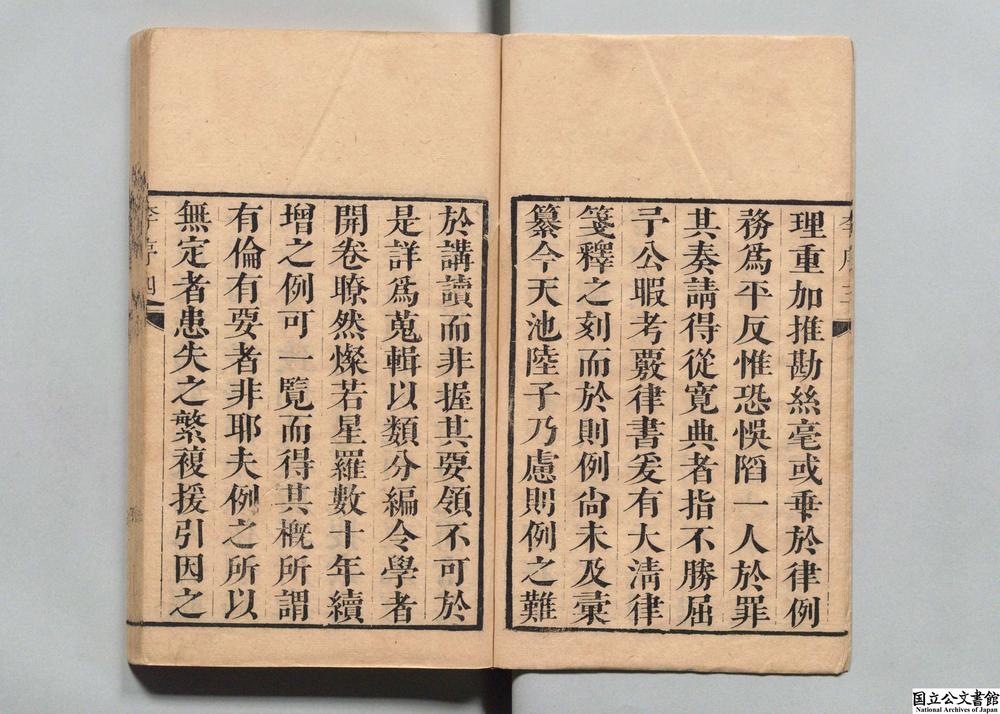 理重加推勘絲毫或乖於律例
務爲平反惟恐悞陷一人於罪
其奏請得從寬典者指不勝屈
予公暇考覈律書爰有大淸律
箋釋之刻而於則例尙未及彙
纂今天池陸子乃慮則例之難
於講讀而非握其要領不可於
是詳爲蒐輯以類分編令學者
開卷瞭然燦若星羅數十年續
增之例可一覽而得其槪所謂
有倫有要者非耶夫例之所以
無定者患失之繁複援引因之
李序四
国立公文書館
National Archives of Japan